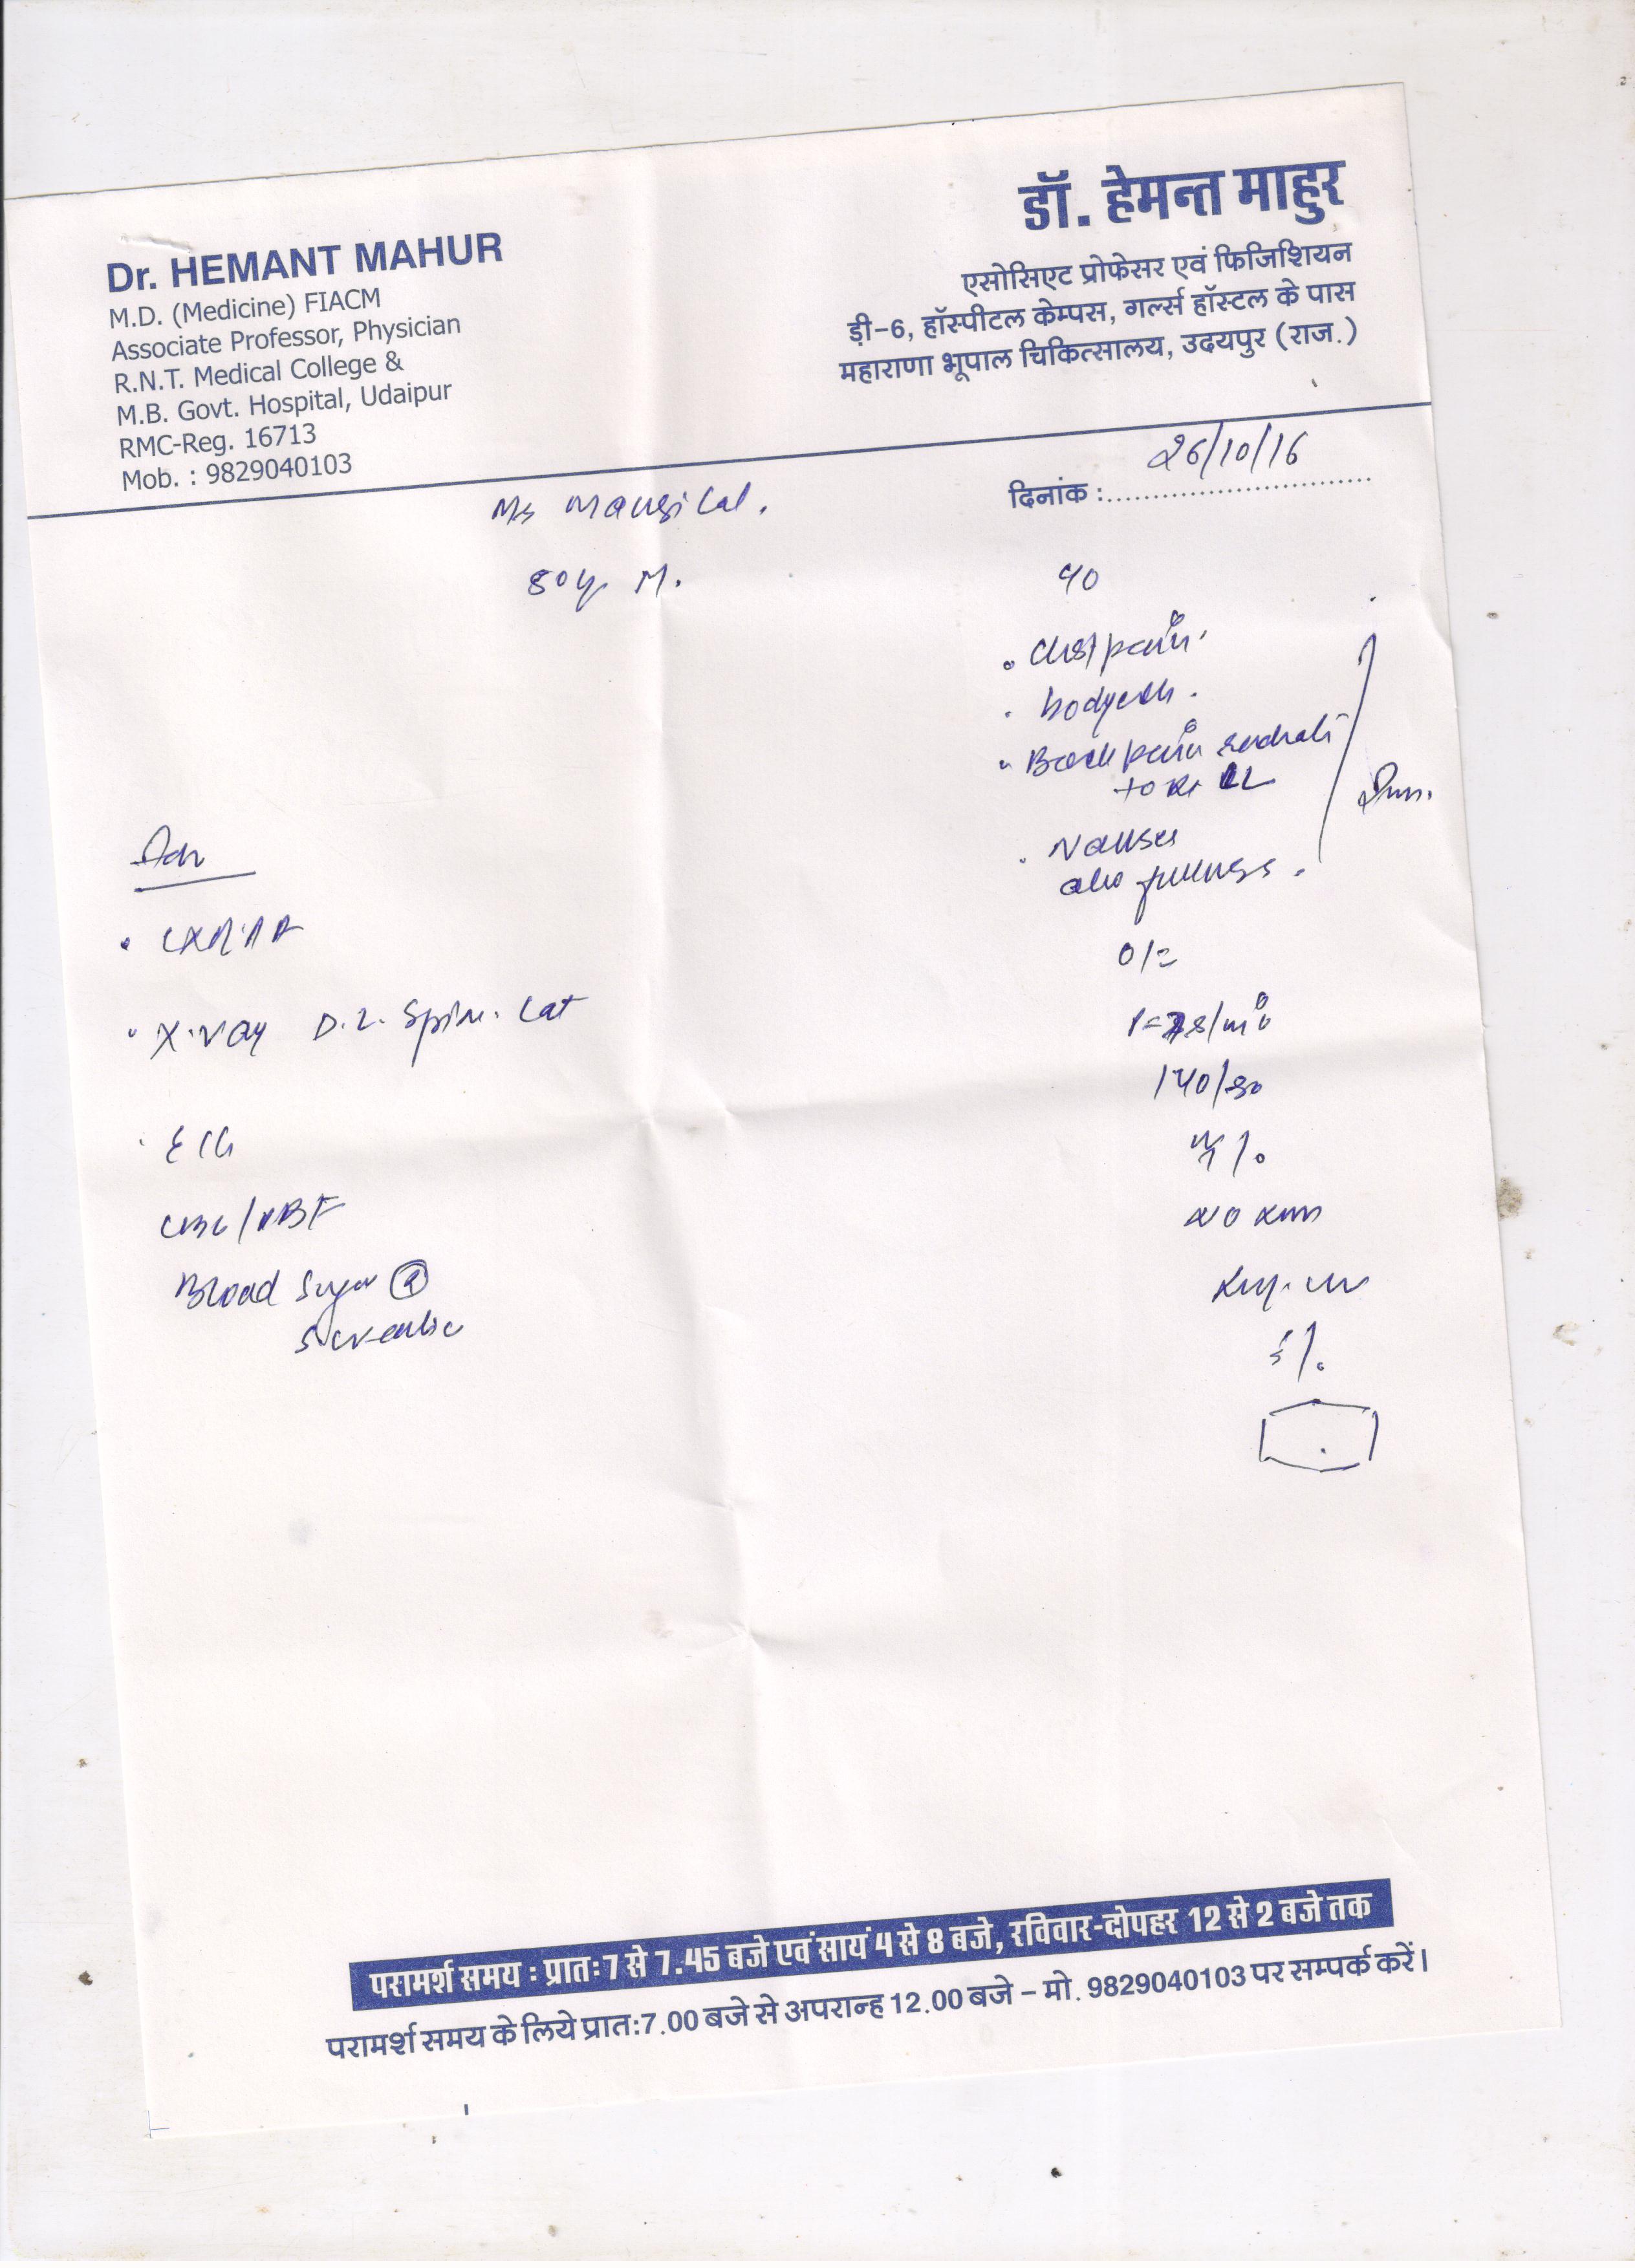 Dr. HEMANT MAHUR
M.D. (Medicine) FIACM
Associate Professor, Physician
R.N.T. Medical College &
M.B. Govt. Hospital, Udaipur
RMC-Reg. 16713
Mob. : 9829040103
डॉ. हेमन्त माहुर
एसोसिएट प्रोफेसर एवं फिजिशियन
ड़ी-6, हॉस्पीटल केम्पस, गर्ल्स हॉस्टल के पास
महाराणा भूपाल चिकित्सालय, उदयपुर (राज.)
दिनांक : 26/10/16
Mangilal.
80y M.
Adv
X-ray D.L. Spine. Lat
ECG
CBC/PBF
Blood Sugar (R)
S. creatine
c/o
• Chest pain.
• bodyache.
• Back pain radiati
to Rt LL
• Nausea
abo fullness.
O/E
140/80
परामर्श समय : प्रातः 7 से 7.45 बजे एवं सायं 4 से 8 बजे, रविवार-दोपहर 12 से 2 बजे तक
परामर्श समय के लिये प्रातः 7.00 बजे से अपरान्ह 12.00 बजे – मो. 9829040103 पर सम्पर्क करें।